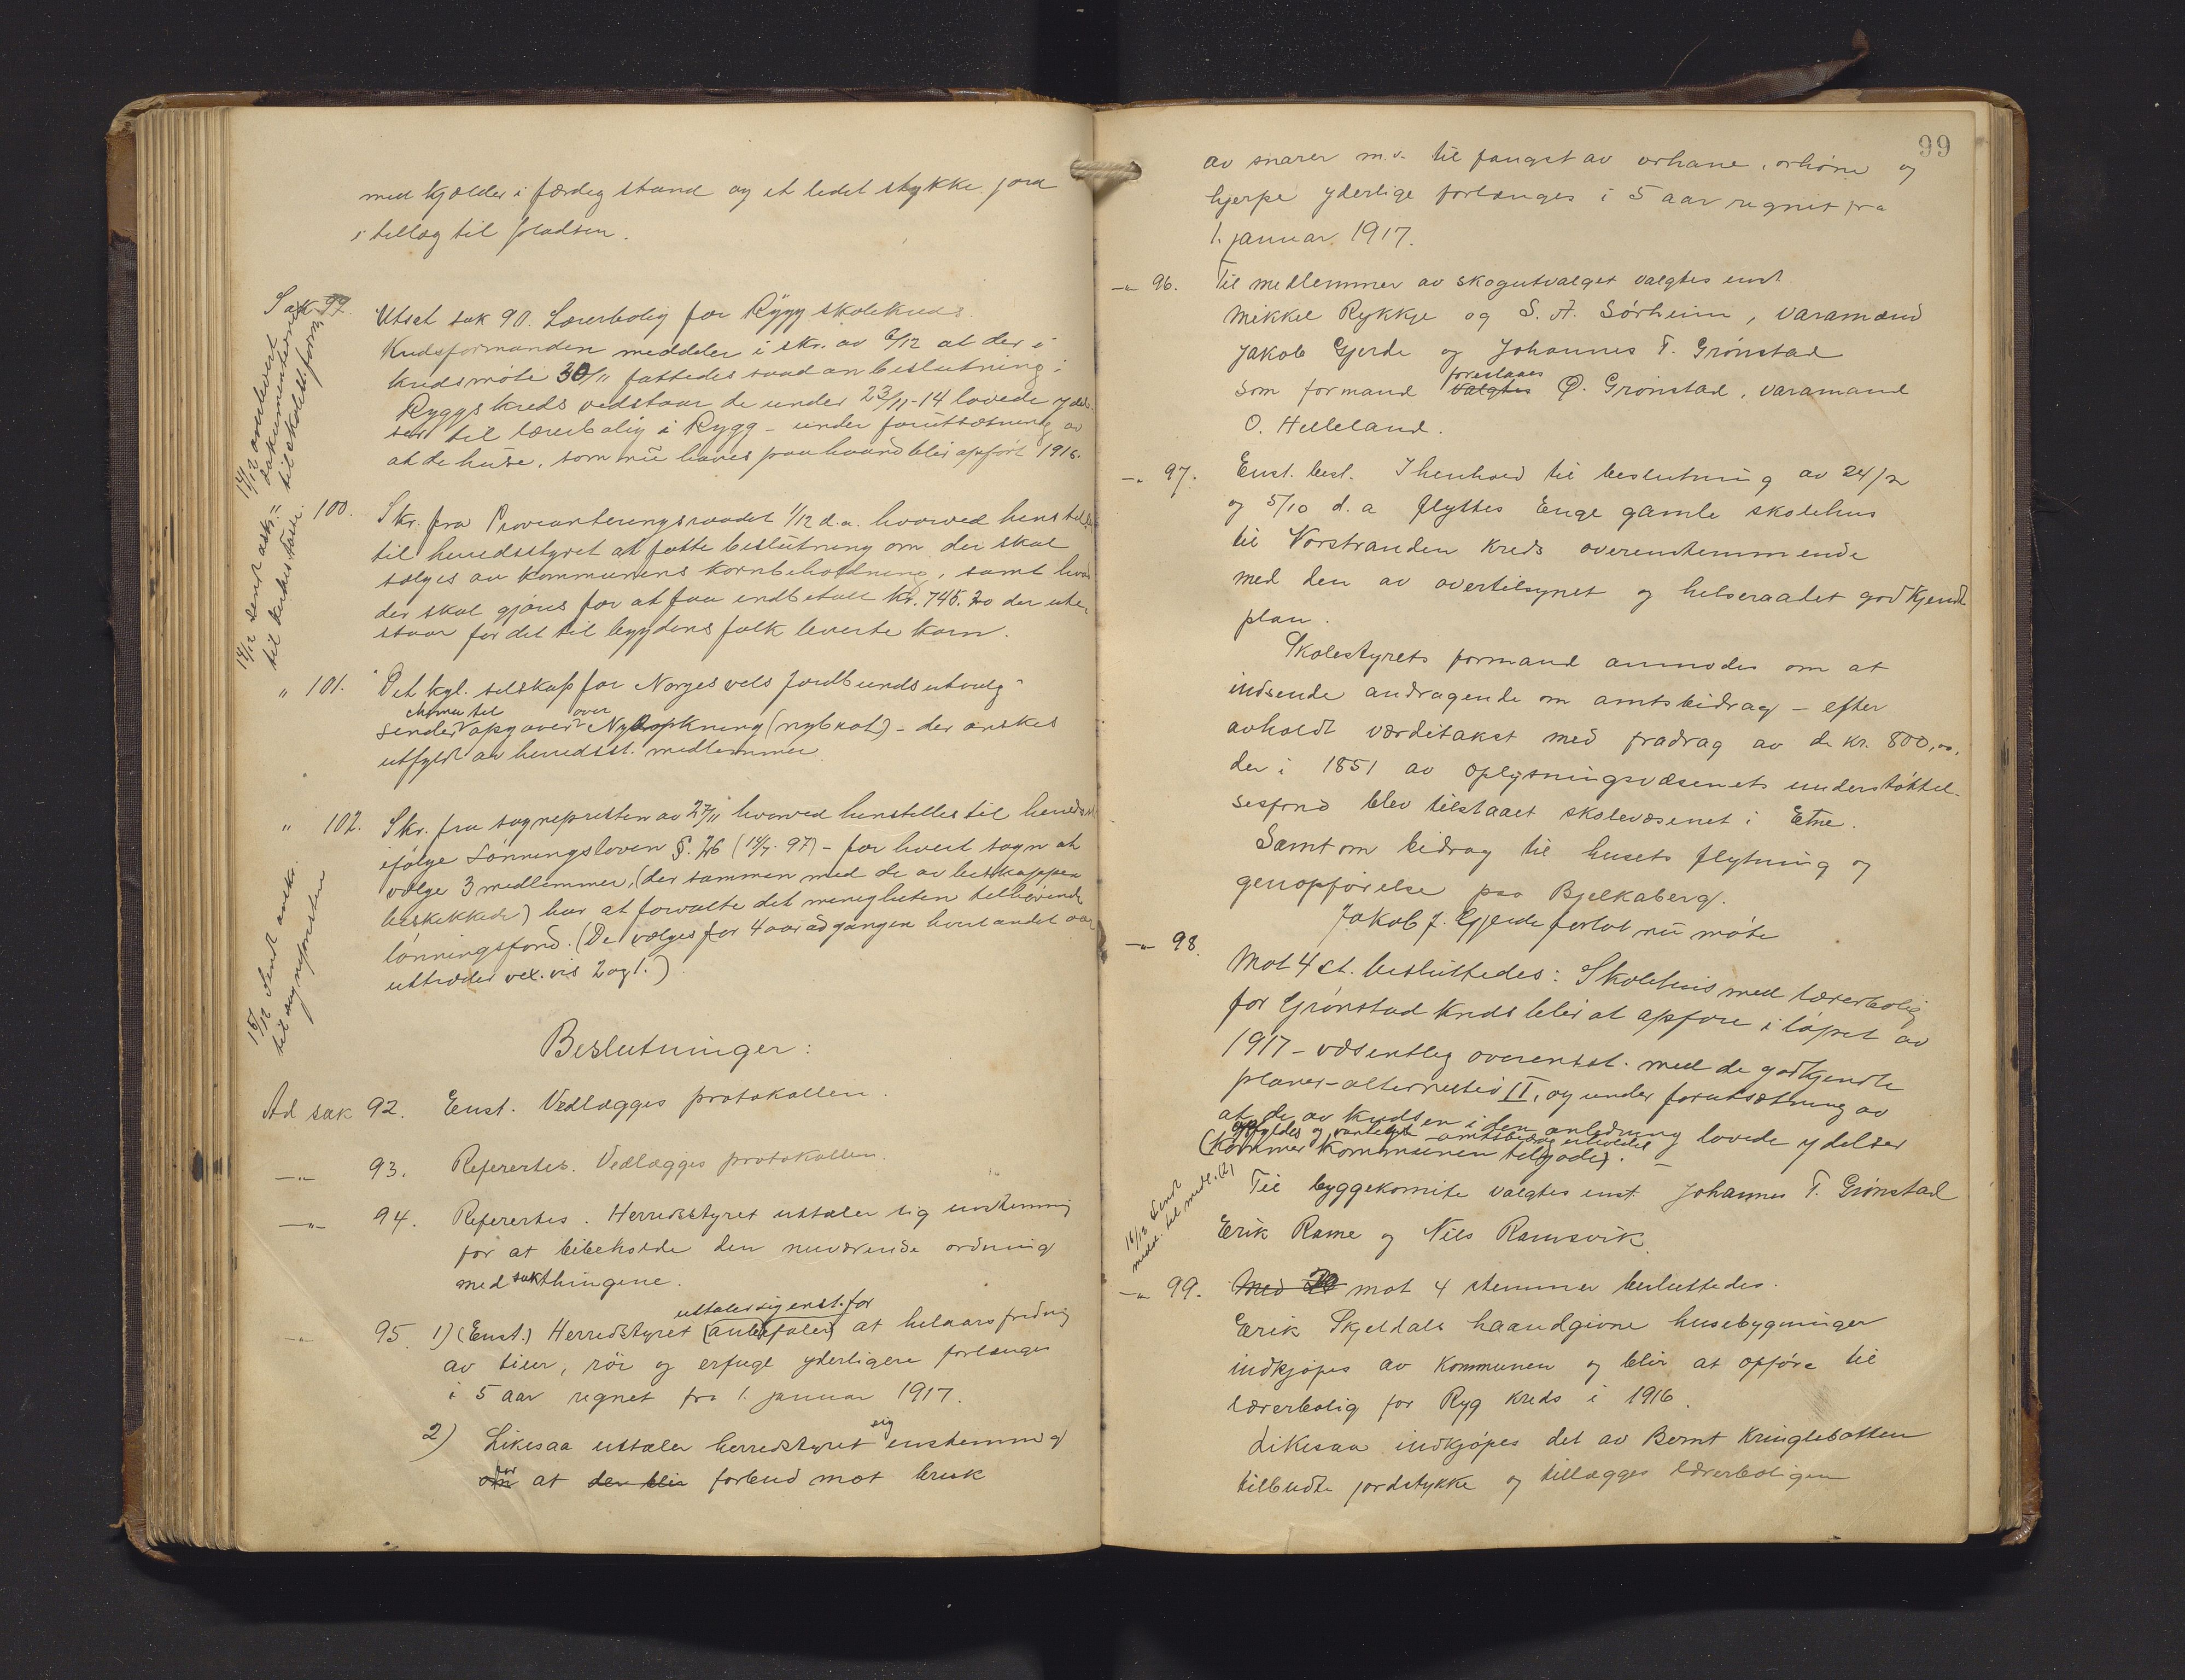 med kjælder i færdig stand og et ledet stykke jord
i tillæg til pladsen.
Sak 99. Utsat sak 90. Lærerbolig for Rygg skolekreds.
Kredsformanden meddeler i skr. av 6/12 at der i
kredsmøte 30/11 fattedes saadan beslutning:
Ryggs kreds vedstaar de under 23/11-14 lovede ydel-
ser til lærerbolig i Rygg - under forutsætning av
at de huse, som nu haves paa haand blir opført 1916.
14/12 overlevert dokumenterne til skolestform.
100. Skr. fra Provianteringsraadet 1/12 d.a. hvorved henstilles
til herredsstyret at fatte beslutning om der skal
sælges av kommunens kornbeholdning, samt hvad
der skal gjøres for at faa indbetalt kr. 745.20 der ute-
staar for det til bygdens folk leverte korn.
14/12 sendt utskr. til
" 101. "Det kgl. selskap for Norges vels Jordbundsutvalg"
sender skema til opgaver over Nydyrkning (nybrot) - der ønskes
utfyldt av herredsst. medlemmer.
" 102. Skr. fra sognepresten av 27/11 hvorved henstilles til herredsst.
ifølge Lønningsloven §. 26 (14/7. 97) - for hvert sogn at
vælge 3 medlemmer, (der sammen med de av biskoppen
beskikkede) har at forvalte det menigheten tilhørende
lønningsfond. (De vælges for 4 aar ad gangen hvert andet aar
uttræder vex.vis 2 og 1.)
15/12 Sendt utskr. til sognepresten
Beslutninger:
Ad sak 92. Enst. Vedlægges protokollen.
-"- 93. Refererter. Vedlægges protokollen.
-"- 94. Refererter. Herredsstyret uttaler sig enstemmig
for at bibeholde den nuværende ordning
med sakthingene.
-"- 95. 1) (Enst.) Herredstyret (anbefaler) uttaler sig enst. for at helaarsfredning
av tiur, röi og erfugl yderligere forlænges
i 5 aar regnet fra 1. januar 1917.
2) Likesaa uttaler herredstyret sig enstemmig
om for at der blir forbud mot bruk
99
av snarer m.v. til fangst av orhane, orhøne og
hjerpe yderlige forlænges i 5 aar regnet fra
1. januar 1917.
-"- 96. Til medlemmer av skogutvalget valgtes enst.
Mikkel Rykkje og S. A. Sørheim, varamænd
Jakob Gjerde og Johannes T. Grønstad
som formand valgtes foreslaaes Ø. Grønstad, varamand
O. Helleland.
-"- 97. Enst. besl. I henhold til beslutning av 24/2
og 5/10 d. a flyttes Enge gamle skolehus
til Norstranden kreds overenstemmende
med den av overtilsynet og helseraadet godkjendte
plan.
Skolestyrets formand anmodes om at
indsende andragende om amtsbidrag - efter
avholdt værditakst med fradrag av de kr. 800,00,
der i 1851 av Oplysningsvæsenets understøttel-
sesfond blev tilstaaet skolevæsenet i Etne.
Samt om bidrag til husets flytning og
genopførelse paa Bjelkaberg.
Jakob J. Gjerde forlot nu møte
-"- 98. Mot 4 st. besluttedes: Skolehus med lærerbolig
for Grønstad kreds blir at opføre i løpet av
1917 - væsentlig overenst. med de godkjendte
planer - alternativ II, og under forutsætning av
at de av kredsen i den anledning lovede ydelser
opfyldes og vanlige amtsbidrag
(kommer kommunen tilgode).
Til byggekomite valgtes enst. Johannes T. Grønstad
Erik Rame og Nils Ramsvik.
16/12 sendt meddel. til medl. (2)
-"- 99. Med mot 4 stemmer besluttedes.
Erik Skjeldals haandgivne husebygninger
indkjøpes av kommunen og blir at opføre til
lærerbolig for Ryg kreds i 1916.
Likesaa indkjøpes det av Bernt Kringlebotten
tilbudte jordstykke og tillægges lærerboligen